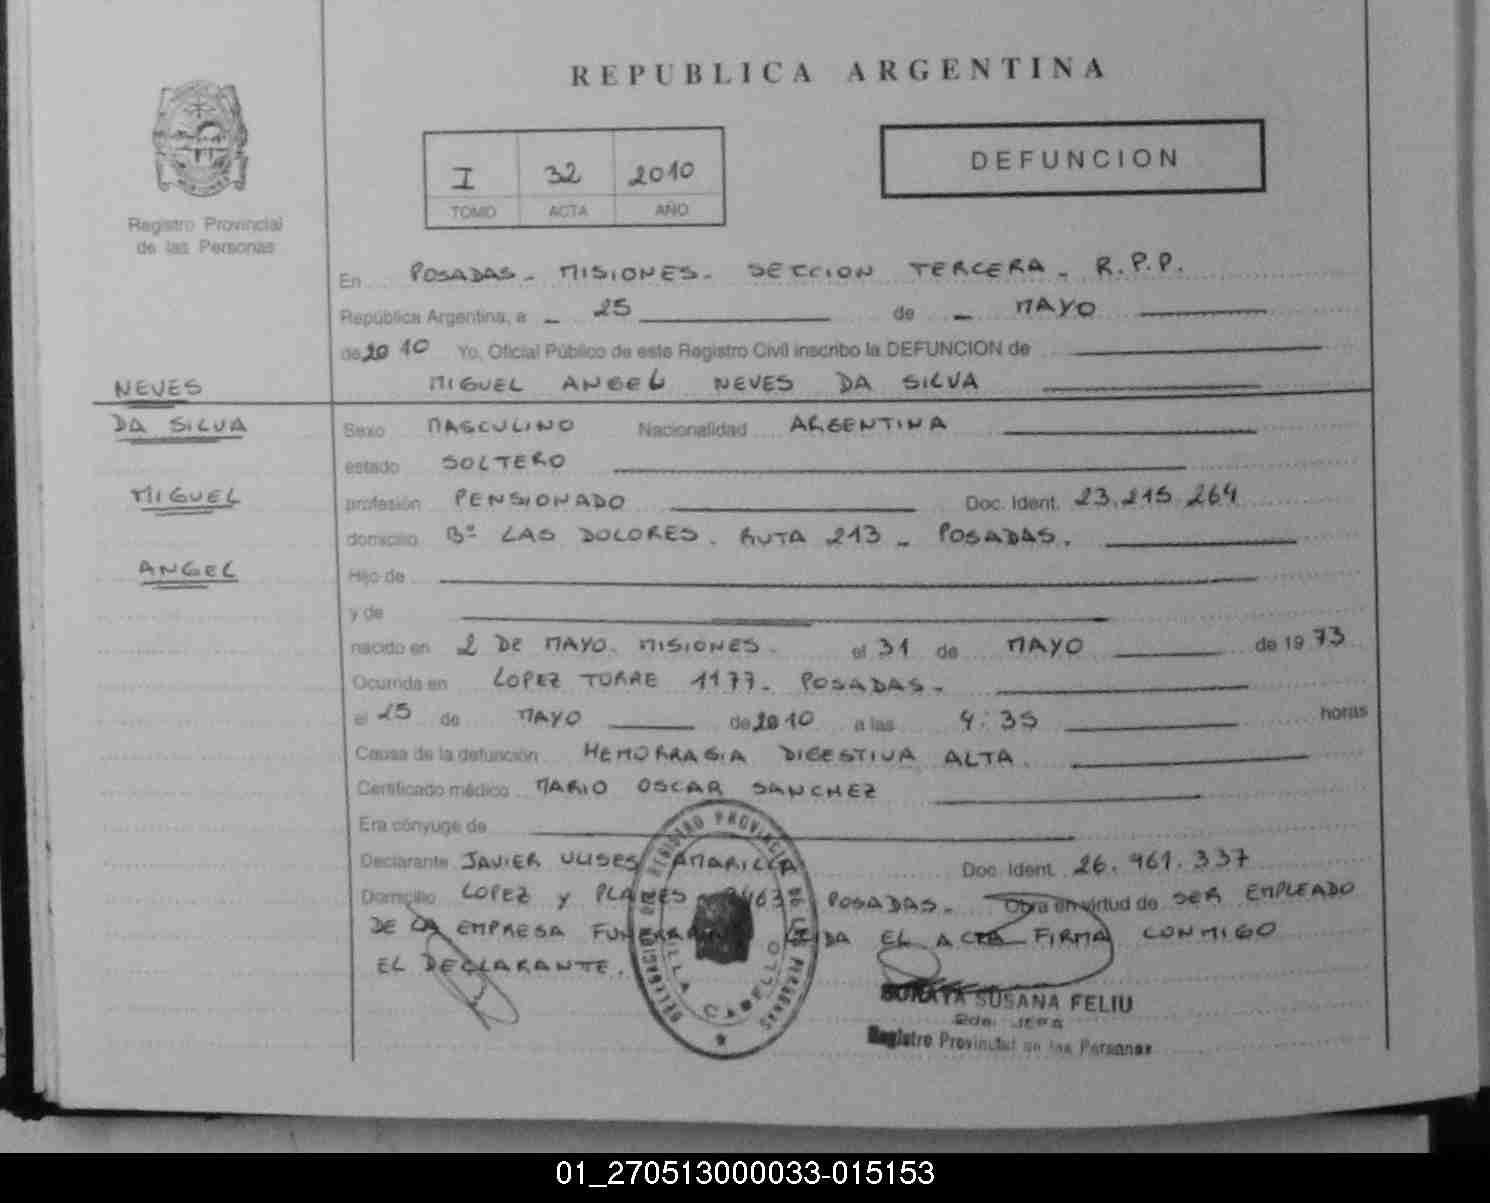 REPUBLICA ARGENTINA
I 32 2010
TOMO ACTA AÑO
DEFUNCION
Registro Provincial
de las Personas
En POSADAS - MISIONES - SECCION TERCERA - R.P.P.
República Argentina, a - 25 de - MAYO
de 2010 Yo, Oficial Público de este Registro Civil inscribo la DEFUNCION de
MIGUEL ANGEL NEVES DA SILVA
NEVES
DA SILVA
MIGUEL
ANGEL
Sexo MASCULINO Nacionalidad ARGENTINA
estado SOLTERO
profesión PENSIONADO Doc. Ident. 23.215.264
domicilio Bº LAS DOLORES. RUTA 213 - POSADAS.
Hijo de
y de
nacido en 2 DE MAYO. MISIONES. el 31 de MAYO de 1973
Ocurrida en LOPEZ TORRE 1177 - POSADAS.
el 25 de MAYO de 2010 a las 4:35 horas
Causa de la defunción HEMORRAGIA DIGESTIVA ALTA.
Certificado médico MARIO OSCAR SANCHEZ
Era cónyuge de
Declarante JAVIER ULISES AMARILLA Doc. Ident. 26.961.337
Domicilio LOPEZ y PLANES POSADAS. Obra en virtud de SER EMPLEADO
DE LA EMPRESA EL ACTA FIRMA CONMIGO
EL DECLARANTE.
REGISTRO PROVINCIAL DE LAS PERSONAS
DELEGACION
VILLA CABELLO
SORAYA SUSANA FELIU
Registro Provincial de las Personas
01_270513000033-015153